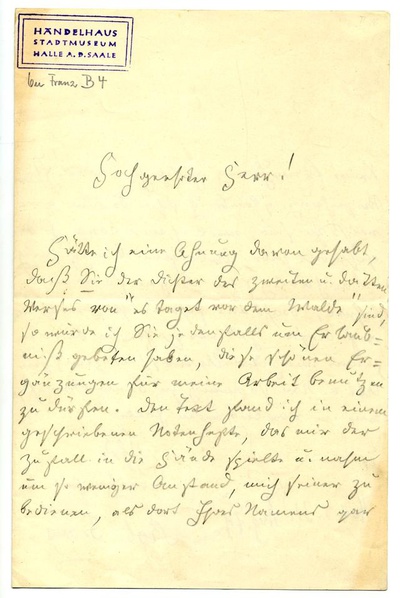 HÄNDELHAUS
STADTMUSEUM
HALLE A. D. SAALE
Franz B 4
Hochgeehrter Herr!
Hätte ich eine Ahnung davon gehabt,
daß Sie der Dichter des zweiten u. dritten
Verses von "es taget vor dem Walde" sind,
so würde ich Sie jedenfalls um Erlaub=
niß gebeten haben, diese schönen Er=
gänzungen für meine Arbeit benutzen
zu dürfen. Den Text fand ich in einem
geschriebenen Notenhefte, das mir der
Zufall in die Hände spielte u. nahm
um so weniger Anstand, mich seiner zu
bedienen, als dort Ihres Namens gar